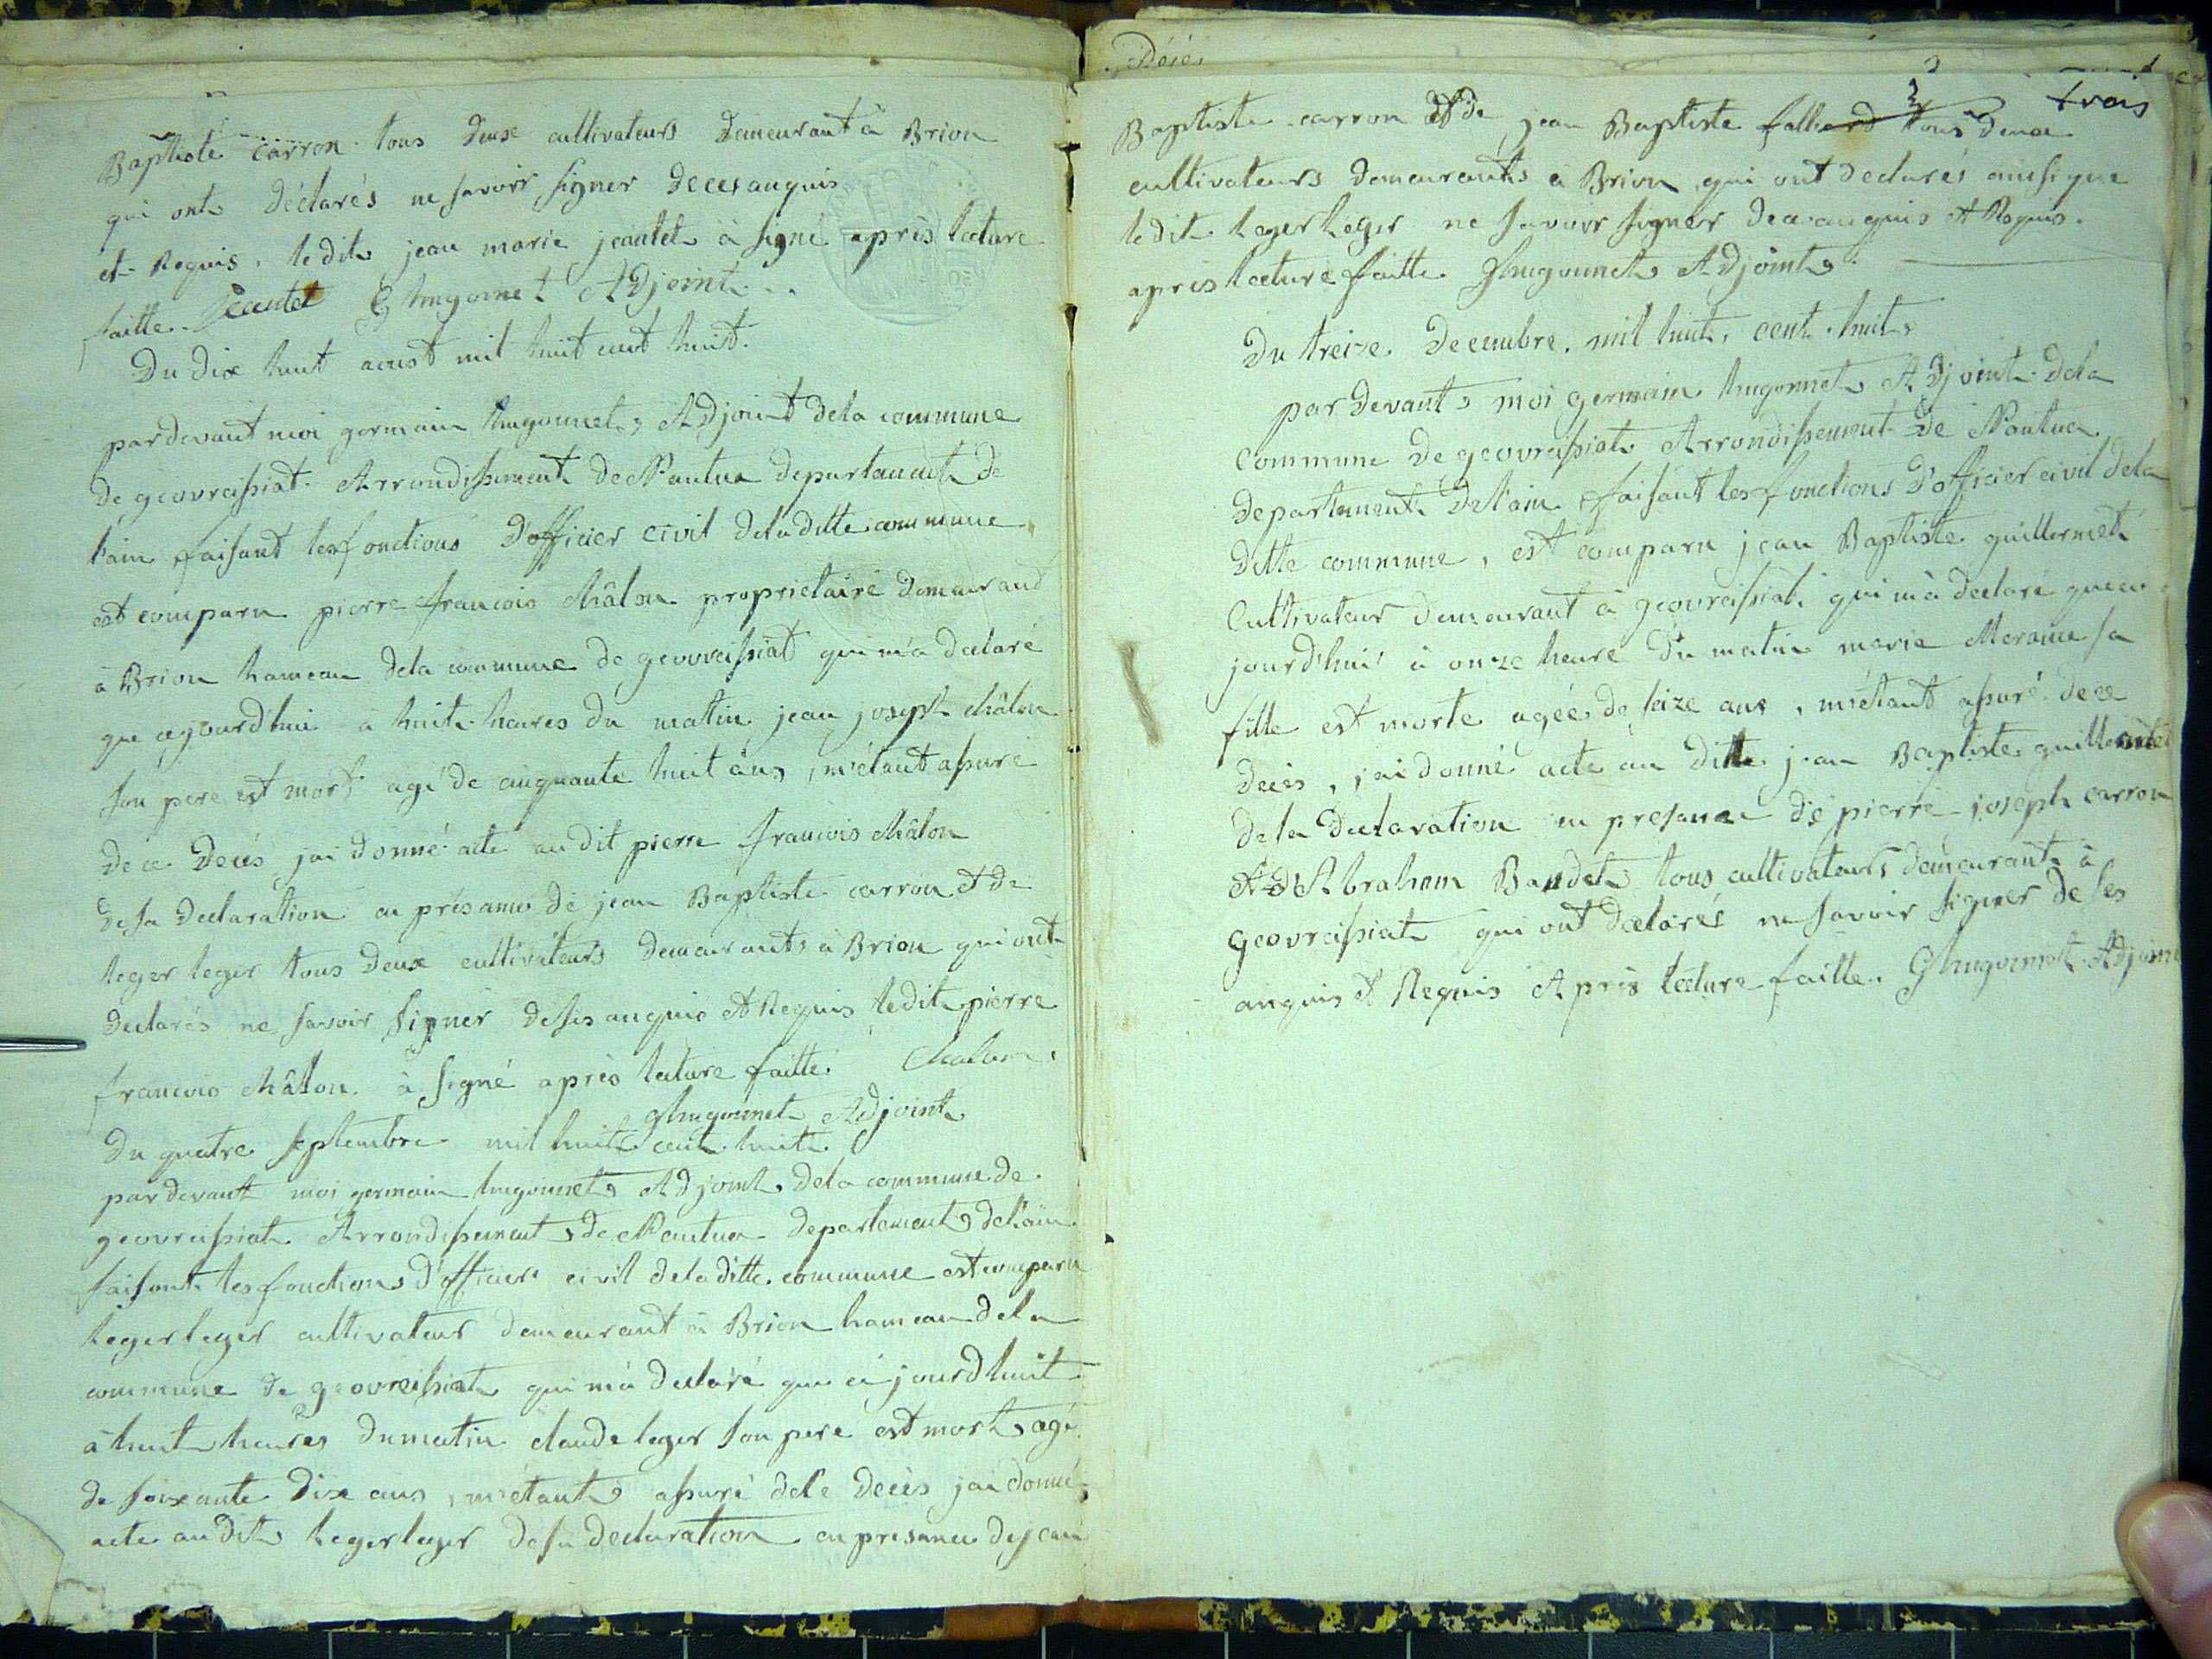 Baptiste carron tous deux cultivateurs demeurant à Brion
qui onts déclarés ne savoir signer de ces anquis
et Requis, le dits jean marie jeantet à signé après lecture
faitte. Jeantet G hugonnet Adjoint
Du dix huit aoust mil huit cent huit.
par devant moi germain hugonnet, Adjoint dela commune
de geovreissiat Arrondissement de Nantua departement de
l'ain faisant les fonctions D'officier civil dela ditte commune
est comparu pierre francois châlon proprietaire demeurand
à Brion hameau dela commune de geovreissiat qui m'a declaré
que cejourd'hui à huit heures du matin jean joseph châlon
son pere est mort agé de cinquante huit ans, m'étant assuré
de ce Decés jai donné acte au dit pierre francois châlon
de sa declaration en présance de jean Baptiste carron et de
leger leger tous deux cultivateurs demeurants à Brion qui ont
declarés ne savoir signer de ses anquis et Requis ledit pierre
francois châlon à signé après lecture faitte. Chalon.
Ghugonnet Adjoint
Du quatre septembre mil huit cent huit
par devant moi germain hugonnet, Adjoint dela commune de
geovreissiat Arrondissement de Nantua departement de l'ain
faisant les fonctions d'officier civil dela ditte commune est comparu
leger leger cultivateur demeurant à Brion hameau dela
commune de geovreissiat qui m'à declaré que cejourd'huit
à huit heures du matin claude leger son pere est mort, agé
de soixante Dix ans, m'étant assuré dele decès jai donné
acte au dit leger leger de sa declaration en presance de jean
Décès
3
trois
Baptiste carron et de jean Baptiste falliard tous deux
cultivateurs demeurants à Brion qui ont declarés ainsi que
le dit leger leger ne savoir signer de ce anquis et Requis.
après lecture faitte Ghugonnet Adjoint
Du treize Decembre mil huit cent huit
par devant moi germain hugonnet Adjoint dela
Commune de geovreissiat Arrondissement de Nantua
departement del'ain faisant les fonctions d'officier civil dela
ditte commune, est comparu jean Baptiste guillermet
Cultivateur demeurant à geovreissiat qui m'à declaré que ce
jourd'hui à onze heure du matin marie sa
fille est morte agée de seize ans, m'étant assuré de ce
decès, jai donné acte au ditte jean Baptiste guillermet
dela declaration en presance de pierre joseph carron
et d'Abraham Baudet tous cultivateurs demeurant à
geovreissiat qui ont declarés ne savoir signer de ses
anquis et Requis Après lecture faitte. Ghugonnet Adjoint